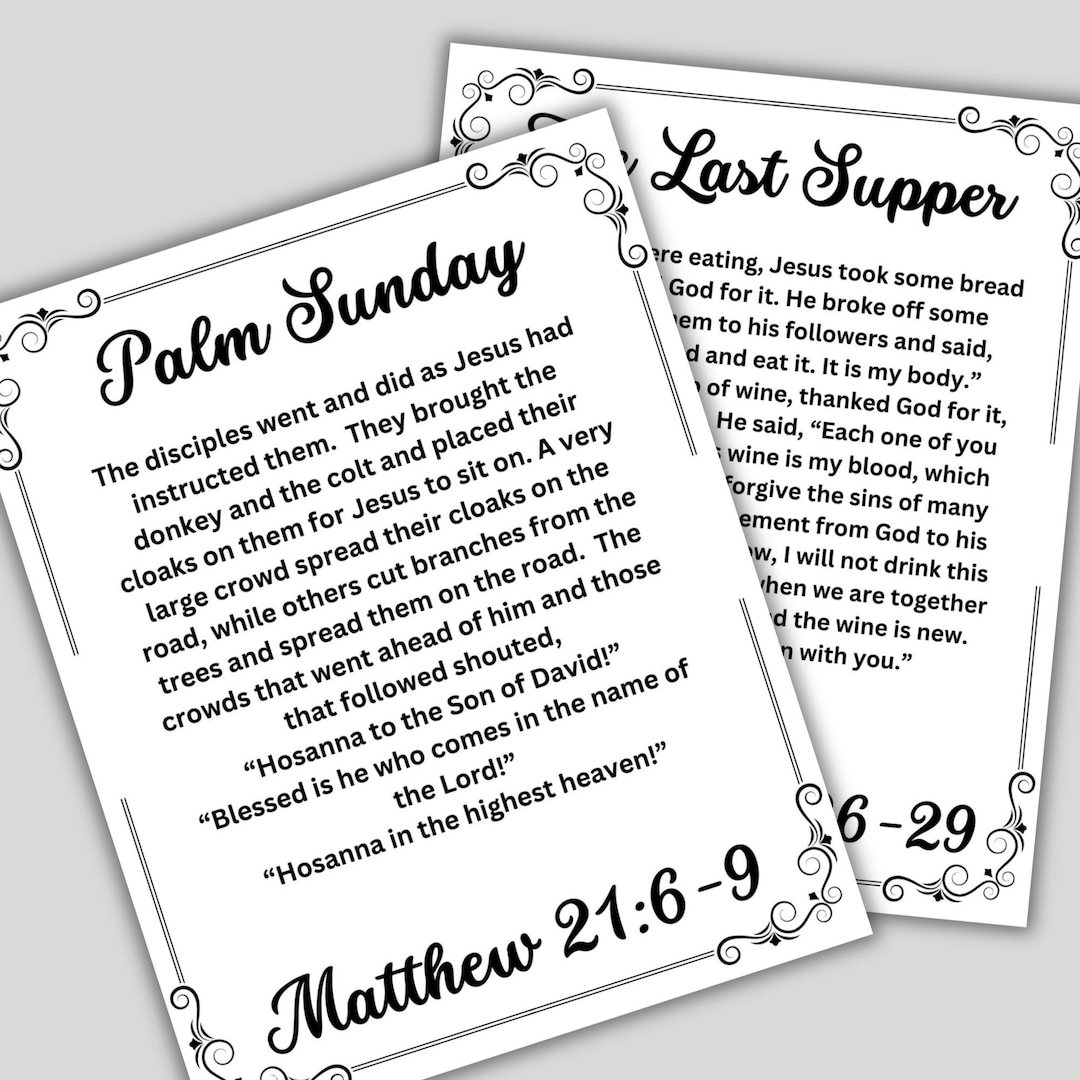 Palm Sunday
The disciples went and did as Jesus had
instructed them. They brought the
donkey and the colt and placed their
cloaks on them for Jesus to sit on. A very
large crowd spread their cloaks on the
road, while others cut branches from the
trees and spread them on the road. The
crowds that went ahead of him and those
that followed shouted,
“Hosanna to the Son of David!”
“Blessed is he who comes in the name of
the Lord!”
“Hosanna in the highest heaven!”
Matthew 21:6-9
Last Supper
eating, Jesus took some bread
God for it. He broke off some
to his followers and said,
and eat it. It is my body.”
of wine, thanked God for it,
He said, “Each one of you
wine is my blood, which
forgive the sins of many
from God to his
I will not drink this
when we are together
the wine is new.
with you.”
-29